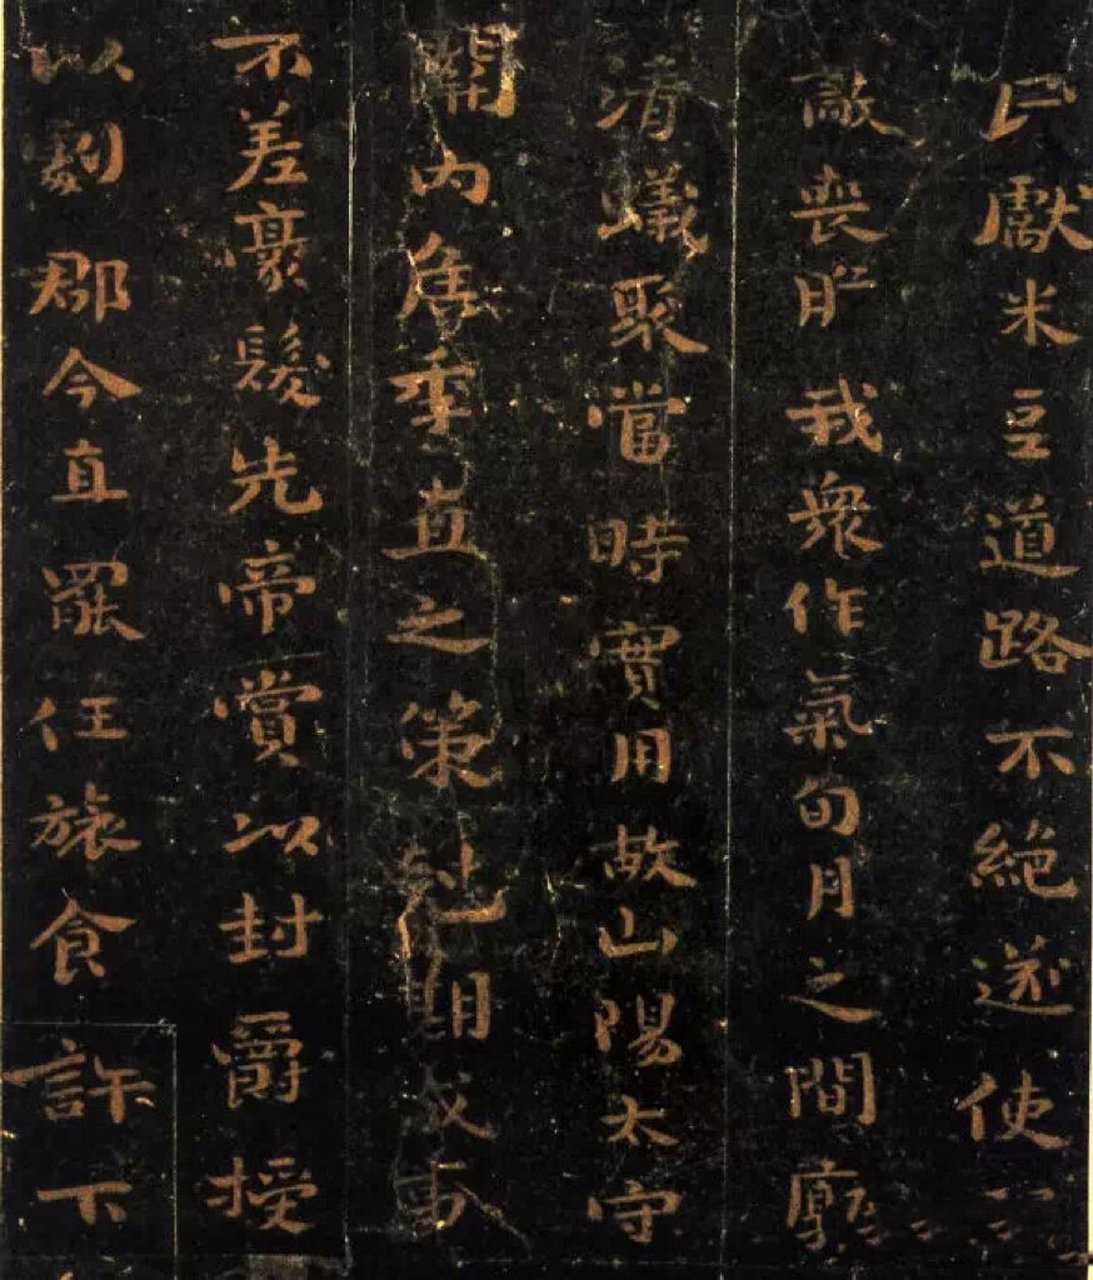 民獻米豆道路不絕遂使強
敵喪膽我衆作氣旬月之間廓
清蟻聚當時實用故山陽太守
關內侯季直之策尅期成事
不差豪髮先帝賞以封爵授
以劇郡今直罷任旅食許下